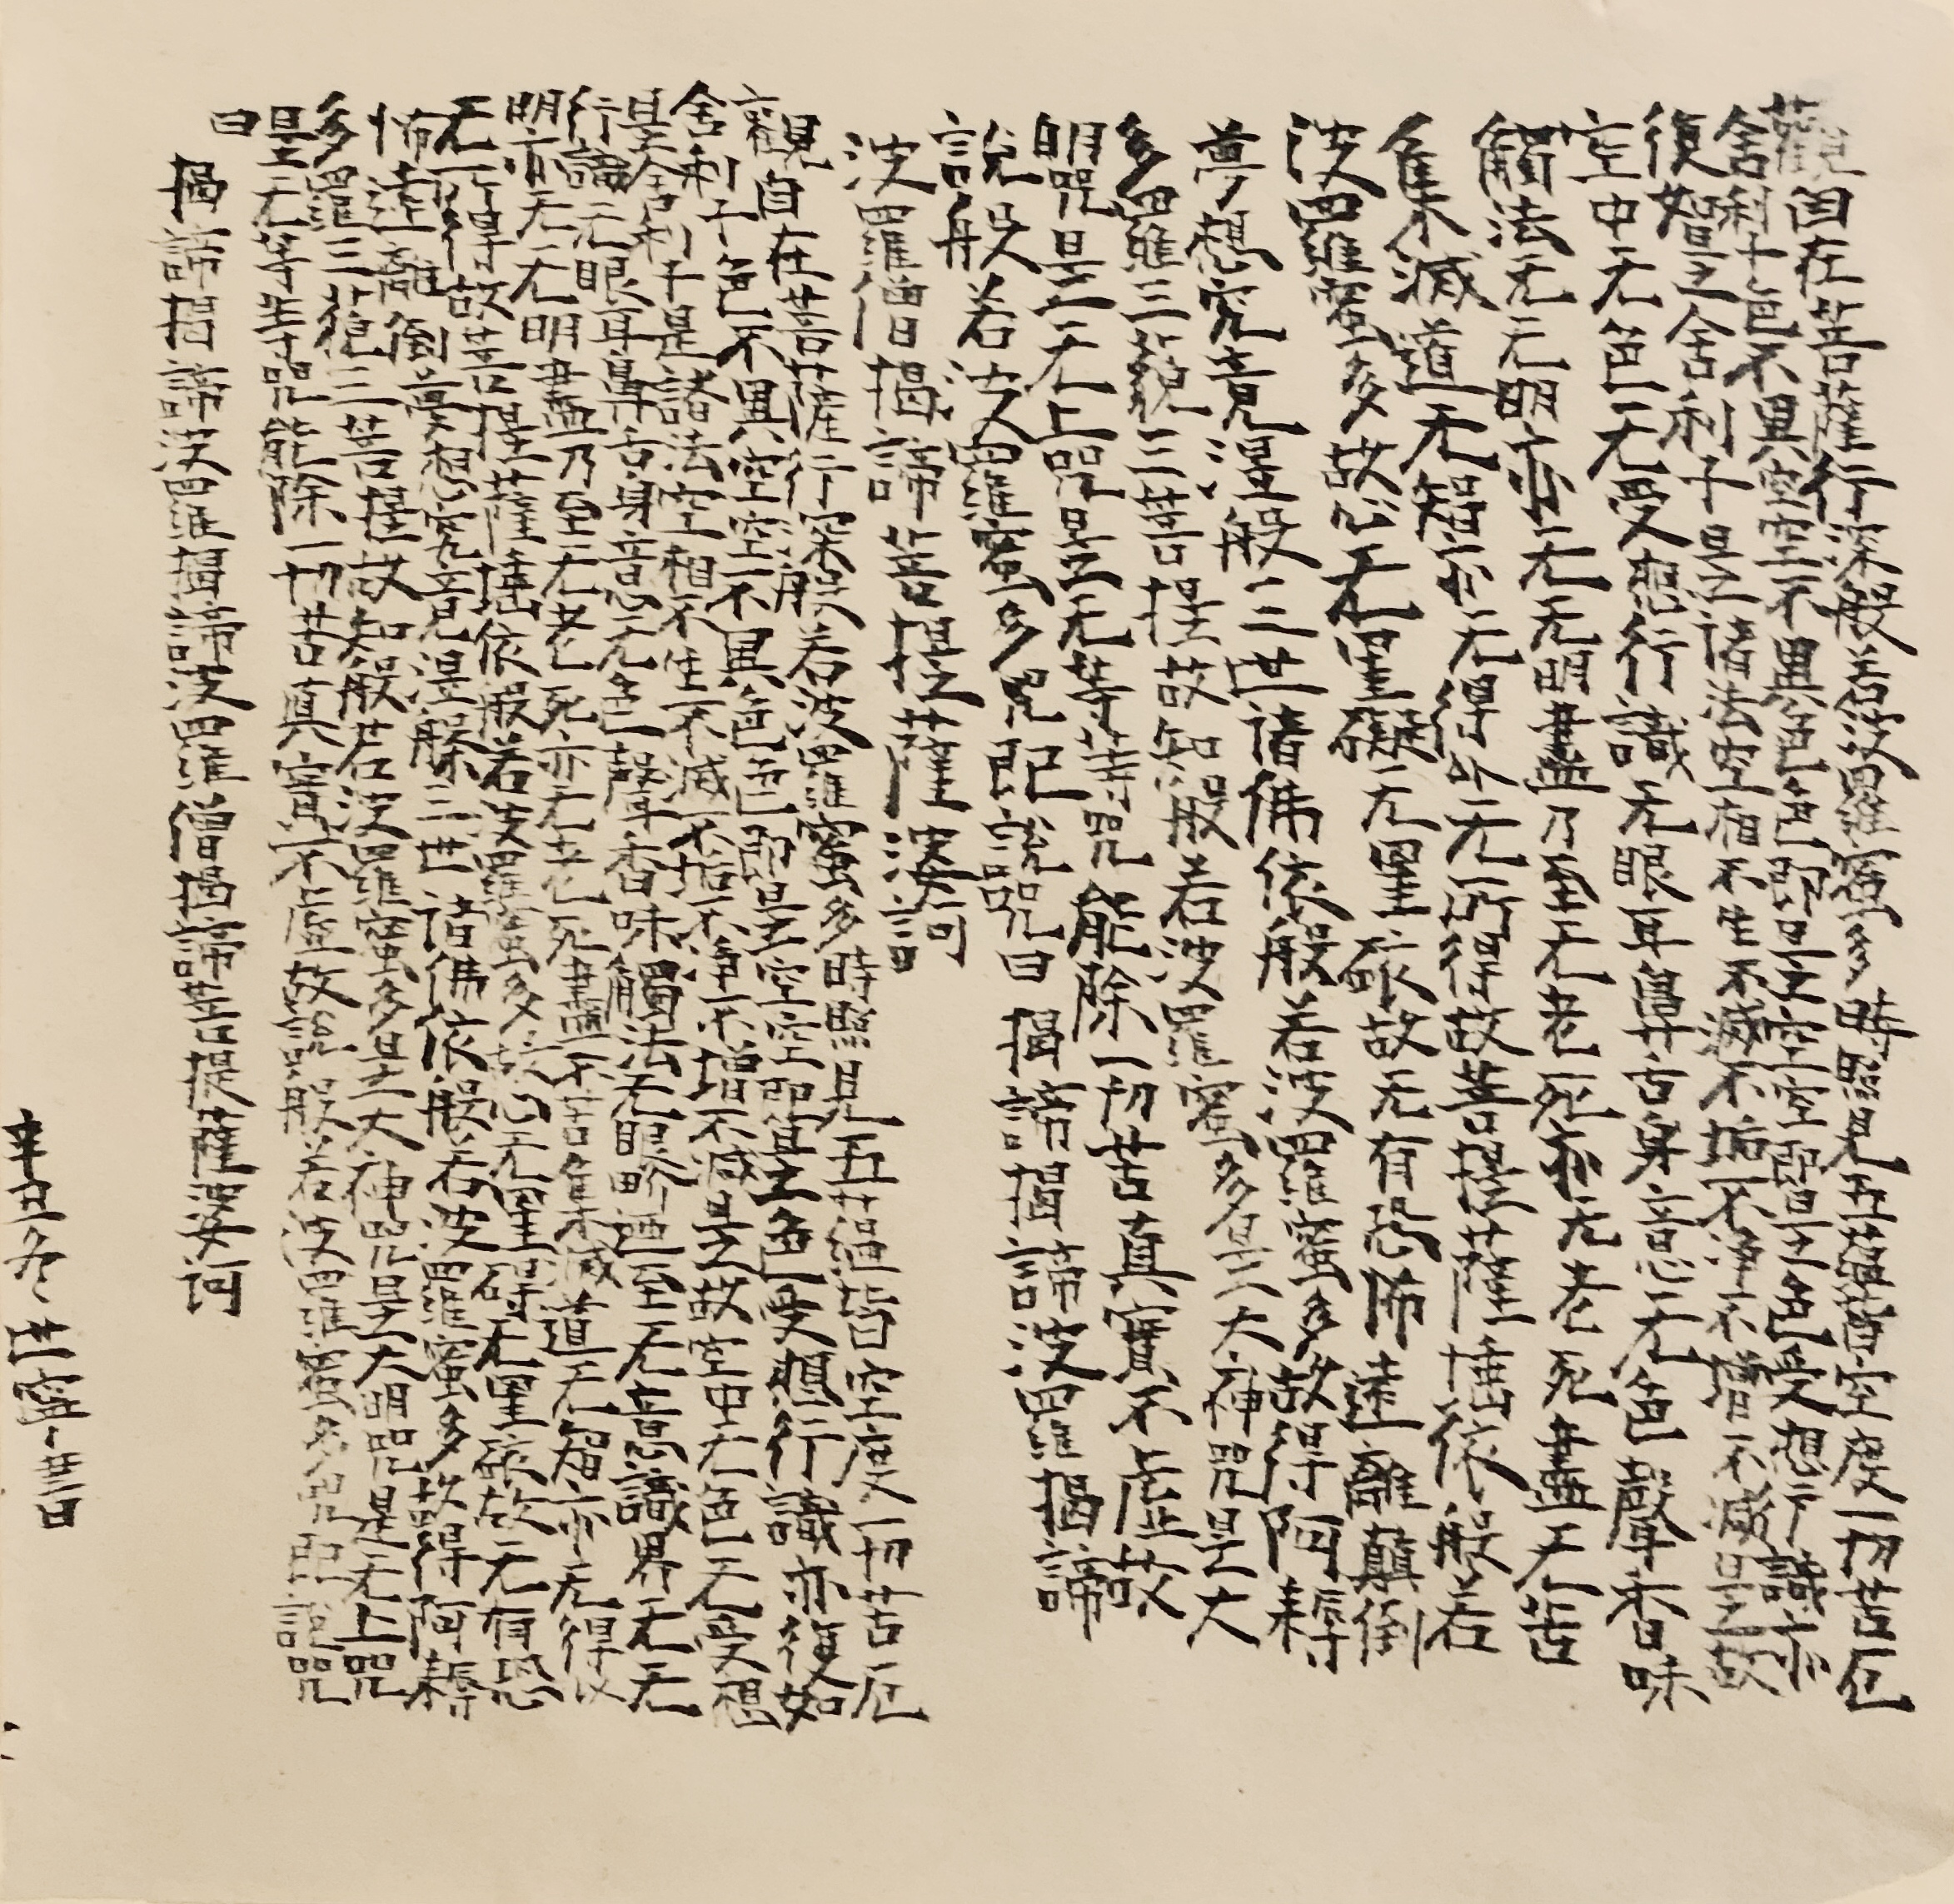 觀自在菩薩行深般若波羅蜜多時照見五蘊皆空度一切苦厄
舍利子色不異空空不異色色即是空空即是色受想行識亦
復如是舍利子是諸法空相不生不滅不垢不淨不增不減是故
空中无色无受想行識无眼耳鼻舌身意无色聲香味
觸法无无明亦无无明盡乃至无老死亦无老死盡无苦
集滅道无智亦无得以无所得故菩提薩埵依般若
波羅蜜多故心无罣礙无罣礙故无有恐怖遠離顛倒
夢想究竟涅般三世諸佛依般若波羅蜜多故得阿耨
多羅三藐三菩提故知般若波羅蜜多是大神咒是大
明咒是无上咒是无等等咒能除一切苦真實不虛故
說般若波羅蜜多咒即說咒曰 揭諦揭諦波羅揭諦
波羅僧揭諦菩提薩婆訶
觀自在菩薩行深般若波羅蜜多時照見五蘊皆空度一切苦厄
舍利子色不異空空不異色色即是空空即是色受想行識亦復如
是舍利子是諸法空相不生不滅不垢不淨不增不減是故空中无色无受想
行識无眼耳鼻舌身意无色聲香味觸法无眼界廼至无意識界无无
明亦无无明盡乃至无老死亦无老死盡不苦集滅道无智亦无得以
无所得故菩提薩埵依般若波羅蜜多故心无罣碍无罣碍故无有恐
怖遠離倒夢想究竟涅槃三世諸佛依般若波羅蜜多故得阿耨
多羅三藐三菩提故知般若波羅蜜多是大神咒是大明咒是无上咒
是无等等咒能除一切苦真實不虛故說般若波羅蜜多咒即說咒
曰
揭諦揭諦波羅揭諦波羅僧揭諦菩提薩婆訶
辛丑冬世寧書